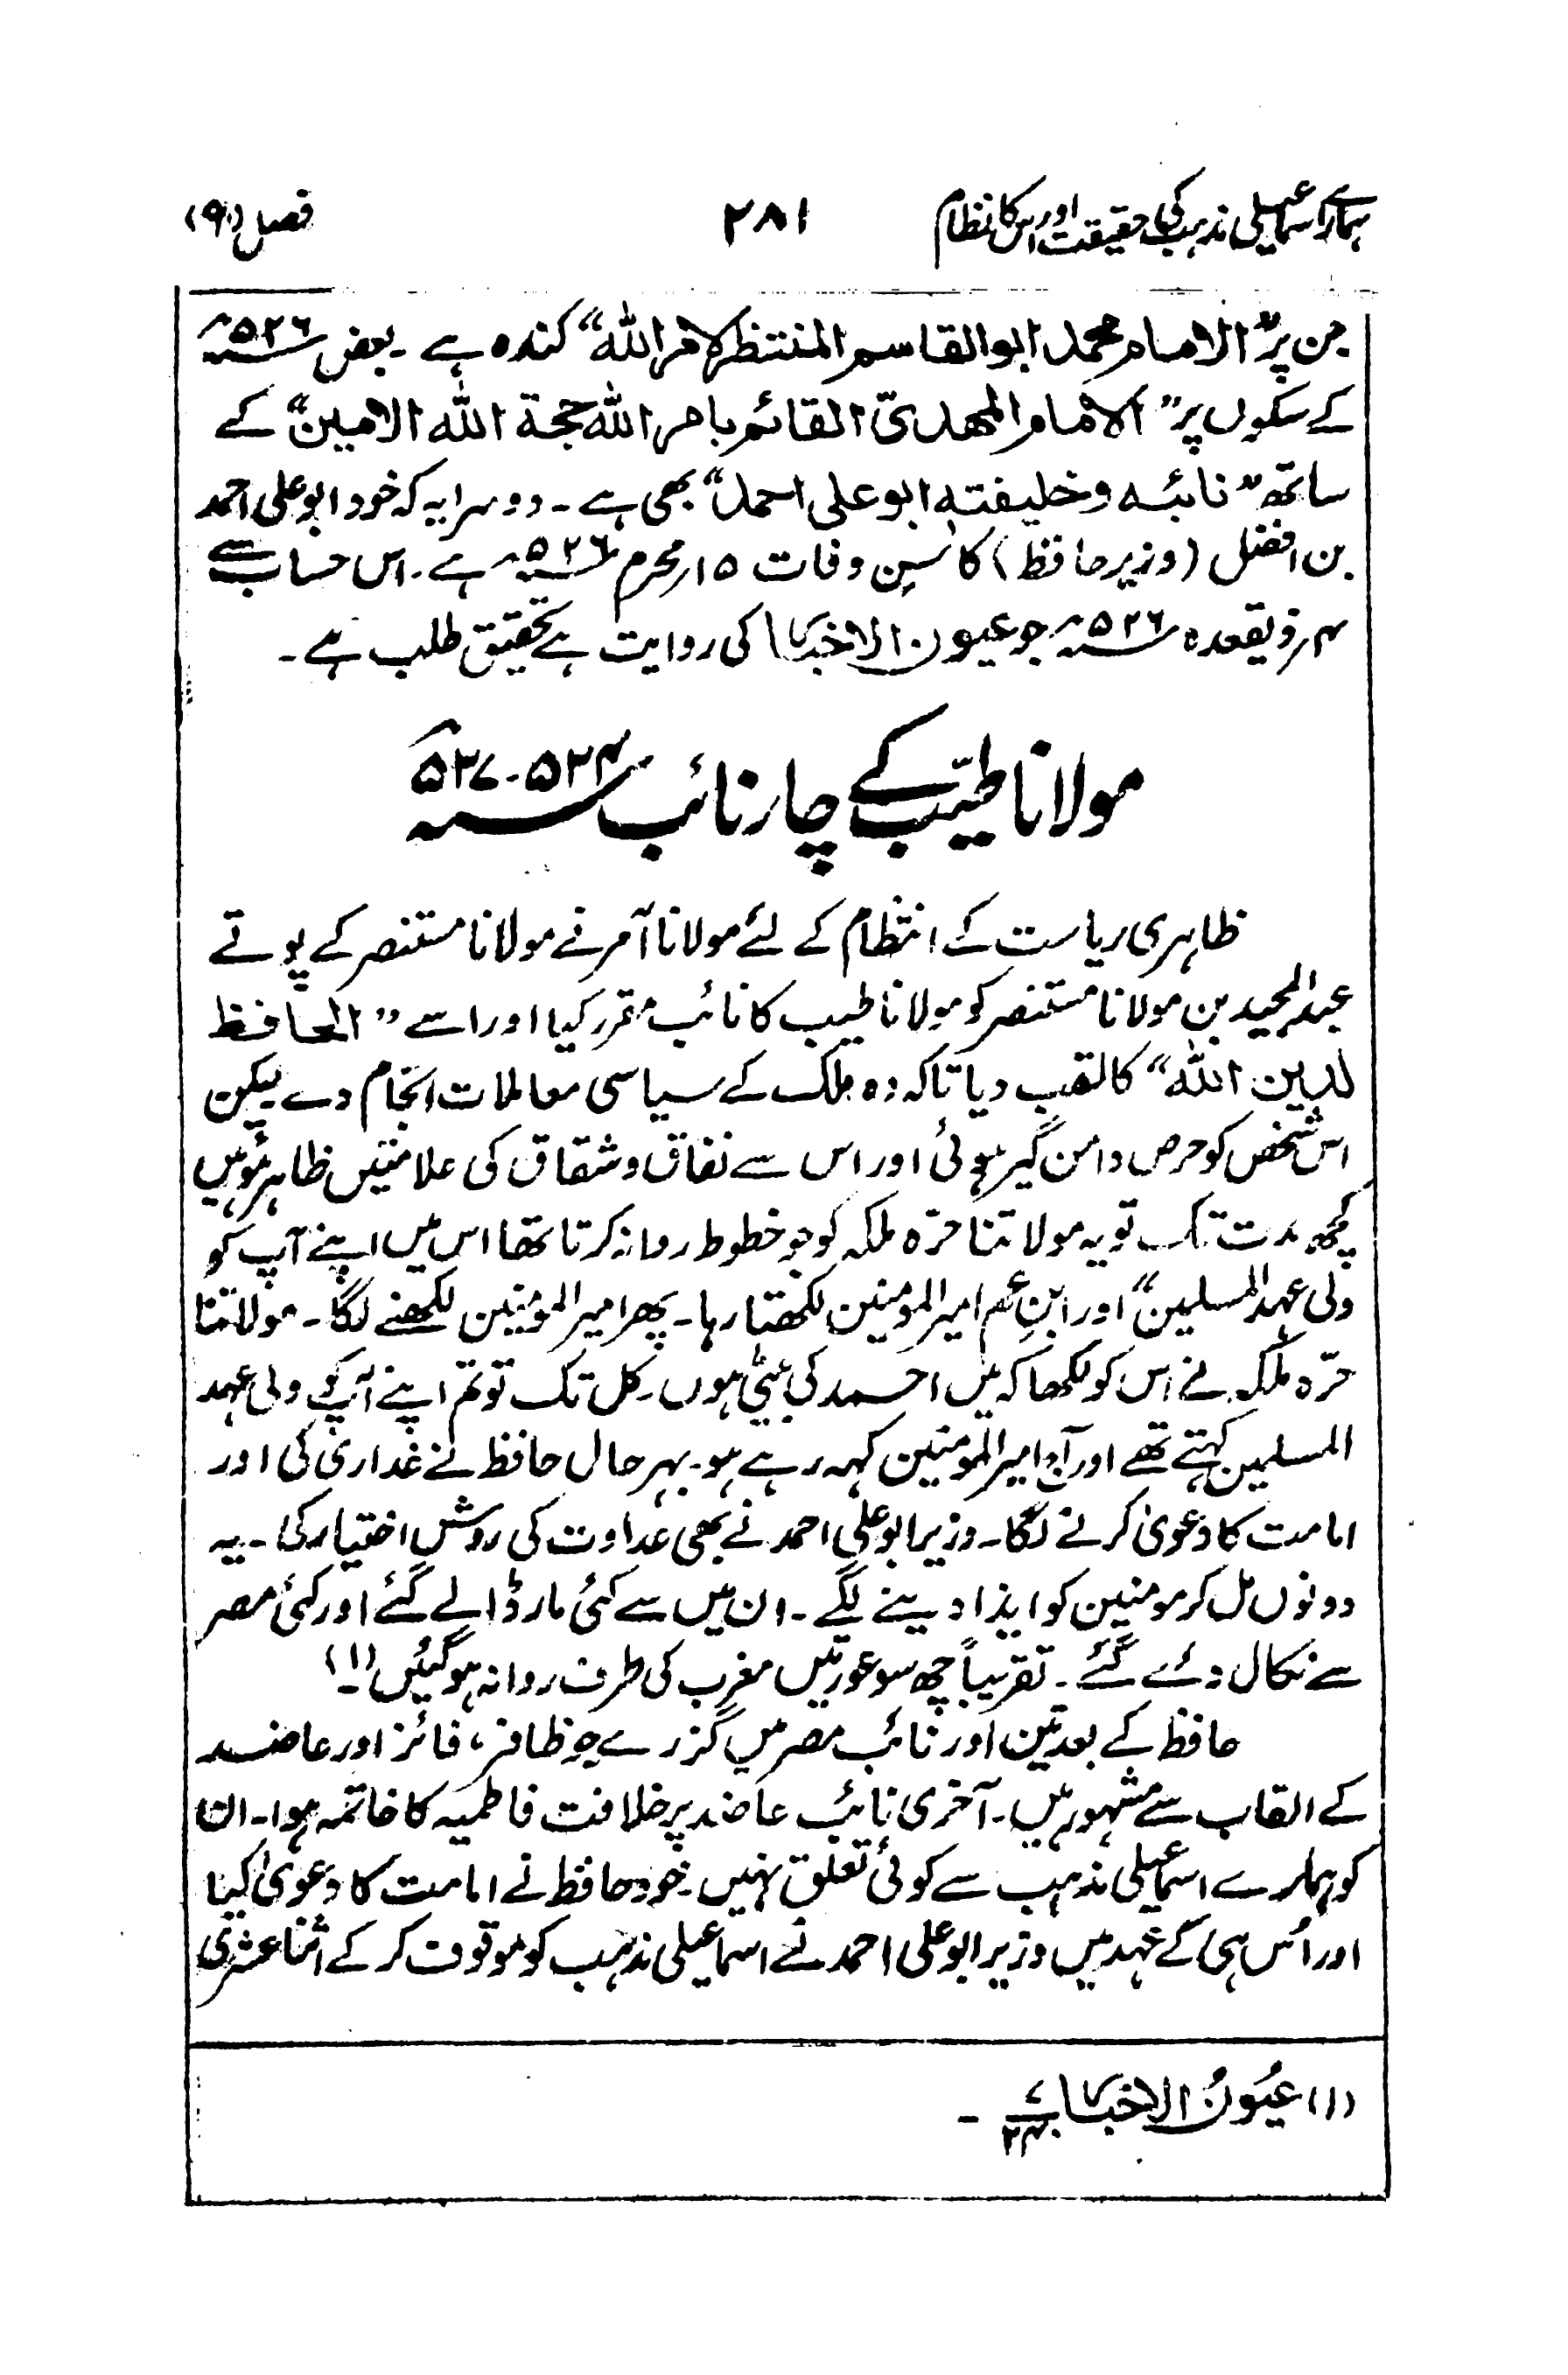 ہمارے اسماعیلی مذہب کی حقیقت اور اس کا نظام ۲۸۱ فصل (۹)
جن پر "الامام محمد ابوالقاسم المنتظر لامر اللہ" کندہ ہے ۔ بعض ۵۲۶ھ
کے سکوں پر "الامام المھدیّ القائم بامر اللہ حجۃ اللہ الامین" کے
ساتھ "نائبہ وخلیفتہ ابوعلی احمد" بھی ہے ۔ دوسرا یہ کہ خود ابوعلی احمد
بن افضل (وزیر حافظ) کا سن وفات ۱۵ محرم ۵۲۶ھ ہے ۔ اس حساب سے
۴ ذیقعدہ ۵۲۶ھ جو عیون الاخبار کی روایت ہے تحقیق طلب ہے ۔
مولانا طیّب کے چار نائب ۵۲۴-۵۶۷ھ
ظاہری ریاست کے انتظام کے لئے مولانا آمر نے مولانا مستنصر کے پوتے
عبدالمجید بن مولانا مستنصر کو مولانا طیب کا نائب مقرر کیا اور اسے "الحافظ
لدین اللہ" کا لقب دیا تاکہ وہ ملک کے سیاسی معاملات انجام دے لیکن
اس شخص کو حرص دامن گیر ہوئی اور اس سے نفاق و شقاق کی علامتیں ظاہر ہوئیں
کچھ مدت تک تو یہ مولاتنا حرّہ ملکہ کو جو خطوط روانہ کرتا تھا اس میں اپنے آپ کو
ولی عہد المسلمین" اور ابنِ عم امیر المومنین لکھتا رہا ۔ پھر امیر المؤمنین لکھنے لگا ۔ مولاتنا
حرّہ ملکہ نے اس کو لکھا کہ میں احمد کی بیٹی ہوں ۔ کل تک تو تم اپنے آپ کو ولی عہد
المسلمین کہتے تھے اور آج امیر المومنین کہہ رہے ہو ۔ بہر حال حافظ نے غداری کی اور
امامت کا دعویٰ کرنے لگا ۔ وزیر ابوعلی احمد نے بھی عداوت کی روش اختیار کی ۔ یہ
دونوں مل کر مومنین کو ایذا دینے لگے ۔ ان میں سے کئی مار ڈالے گئے اور کئی مصر
سے نکال دئے گئے ۔ تقریباً چھ سو عورتیں مغرب کی طرف روانہ ہوگئیں (۱) ۔
حافظ کے بعد تین اور نائب مصر میں گزرے جو ظافر ، فائز اور عاضد
کے القاب سے مشہور ہیں ۔ آخری نائب عاضد پر خلافت فاطمیہ کا خاتمہ ہوا ۔ ان
کو ہمارے اسماعیلی مذہب سے کوئی تعلق نہیں ۔ خود حافظ نے امامت کا دعویٰ کیا
اور اُس ہی کے عہد میں وزیر ابوعلی احمد نے اسماعیلی مذہب کو موقوف کر کے اثنا عشری
(۱) عیُونُ الاخبار ۔